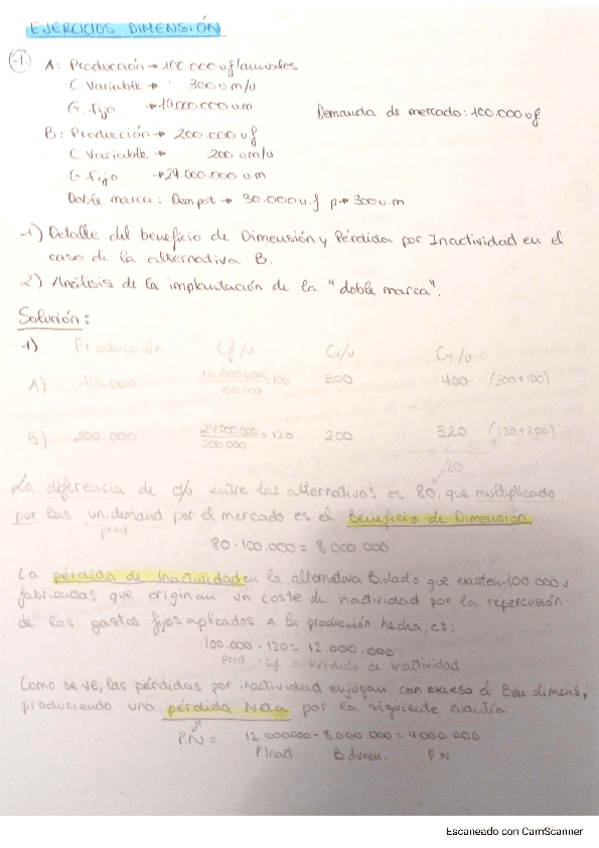 EJERCICIOS DIMENSIÓN
1. A: Producción → 100.000 uf/anuales
C. Variable → 300 um/u
G. fijo → 10.000.000 u.m
Demanda de mercado: 100.000 uf
B: Producción → 200.000 uf
C. Variable → 200 um/u
G fijo → 24.000.000 u.m
Doble marca: Dem pot → 30.000 u.f p → 300 u.m
1) Detalle del beneficio de Dimensión y Pérdida por Inactividad en el
caso de la alternativa B.
2) Análisis de la implantación de la "doble marca".
Solución:
1) Producción Cf/u Cv/u CT/u
A) 100.000 10.000.000/100.000 = 100 300 400 (300+100)
B) 200.000 24.000.000/200.000 = 120 200 320 (120+200)
80
La diferencia de c/u entre las alternativas es 80, que multiplicado
por las un. demand por el mercado es el Beneficio de Dimensión
80 · 100.000 = 8.000.000
La pérdida de Inactividad en la alternativa B, dado que existen 100.000 u
fabricadas que originan un coste de inactividad por la repercusión
de los gastos fijos aplicados a la producción hecha, es:
100.000 · 120 = 12.000.000
Prod · Cf = Pérdida de Inactividad
Como se ve, las pérdidas por inactividad enjugan con exceso el Ben dimens,
produciendo una pérdida Neta por la siguiente cuantía
PN = 12.000000 - 8.000.000 = 4000.000
P Inact B dimen. PN
Escaneado con CamScanner